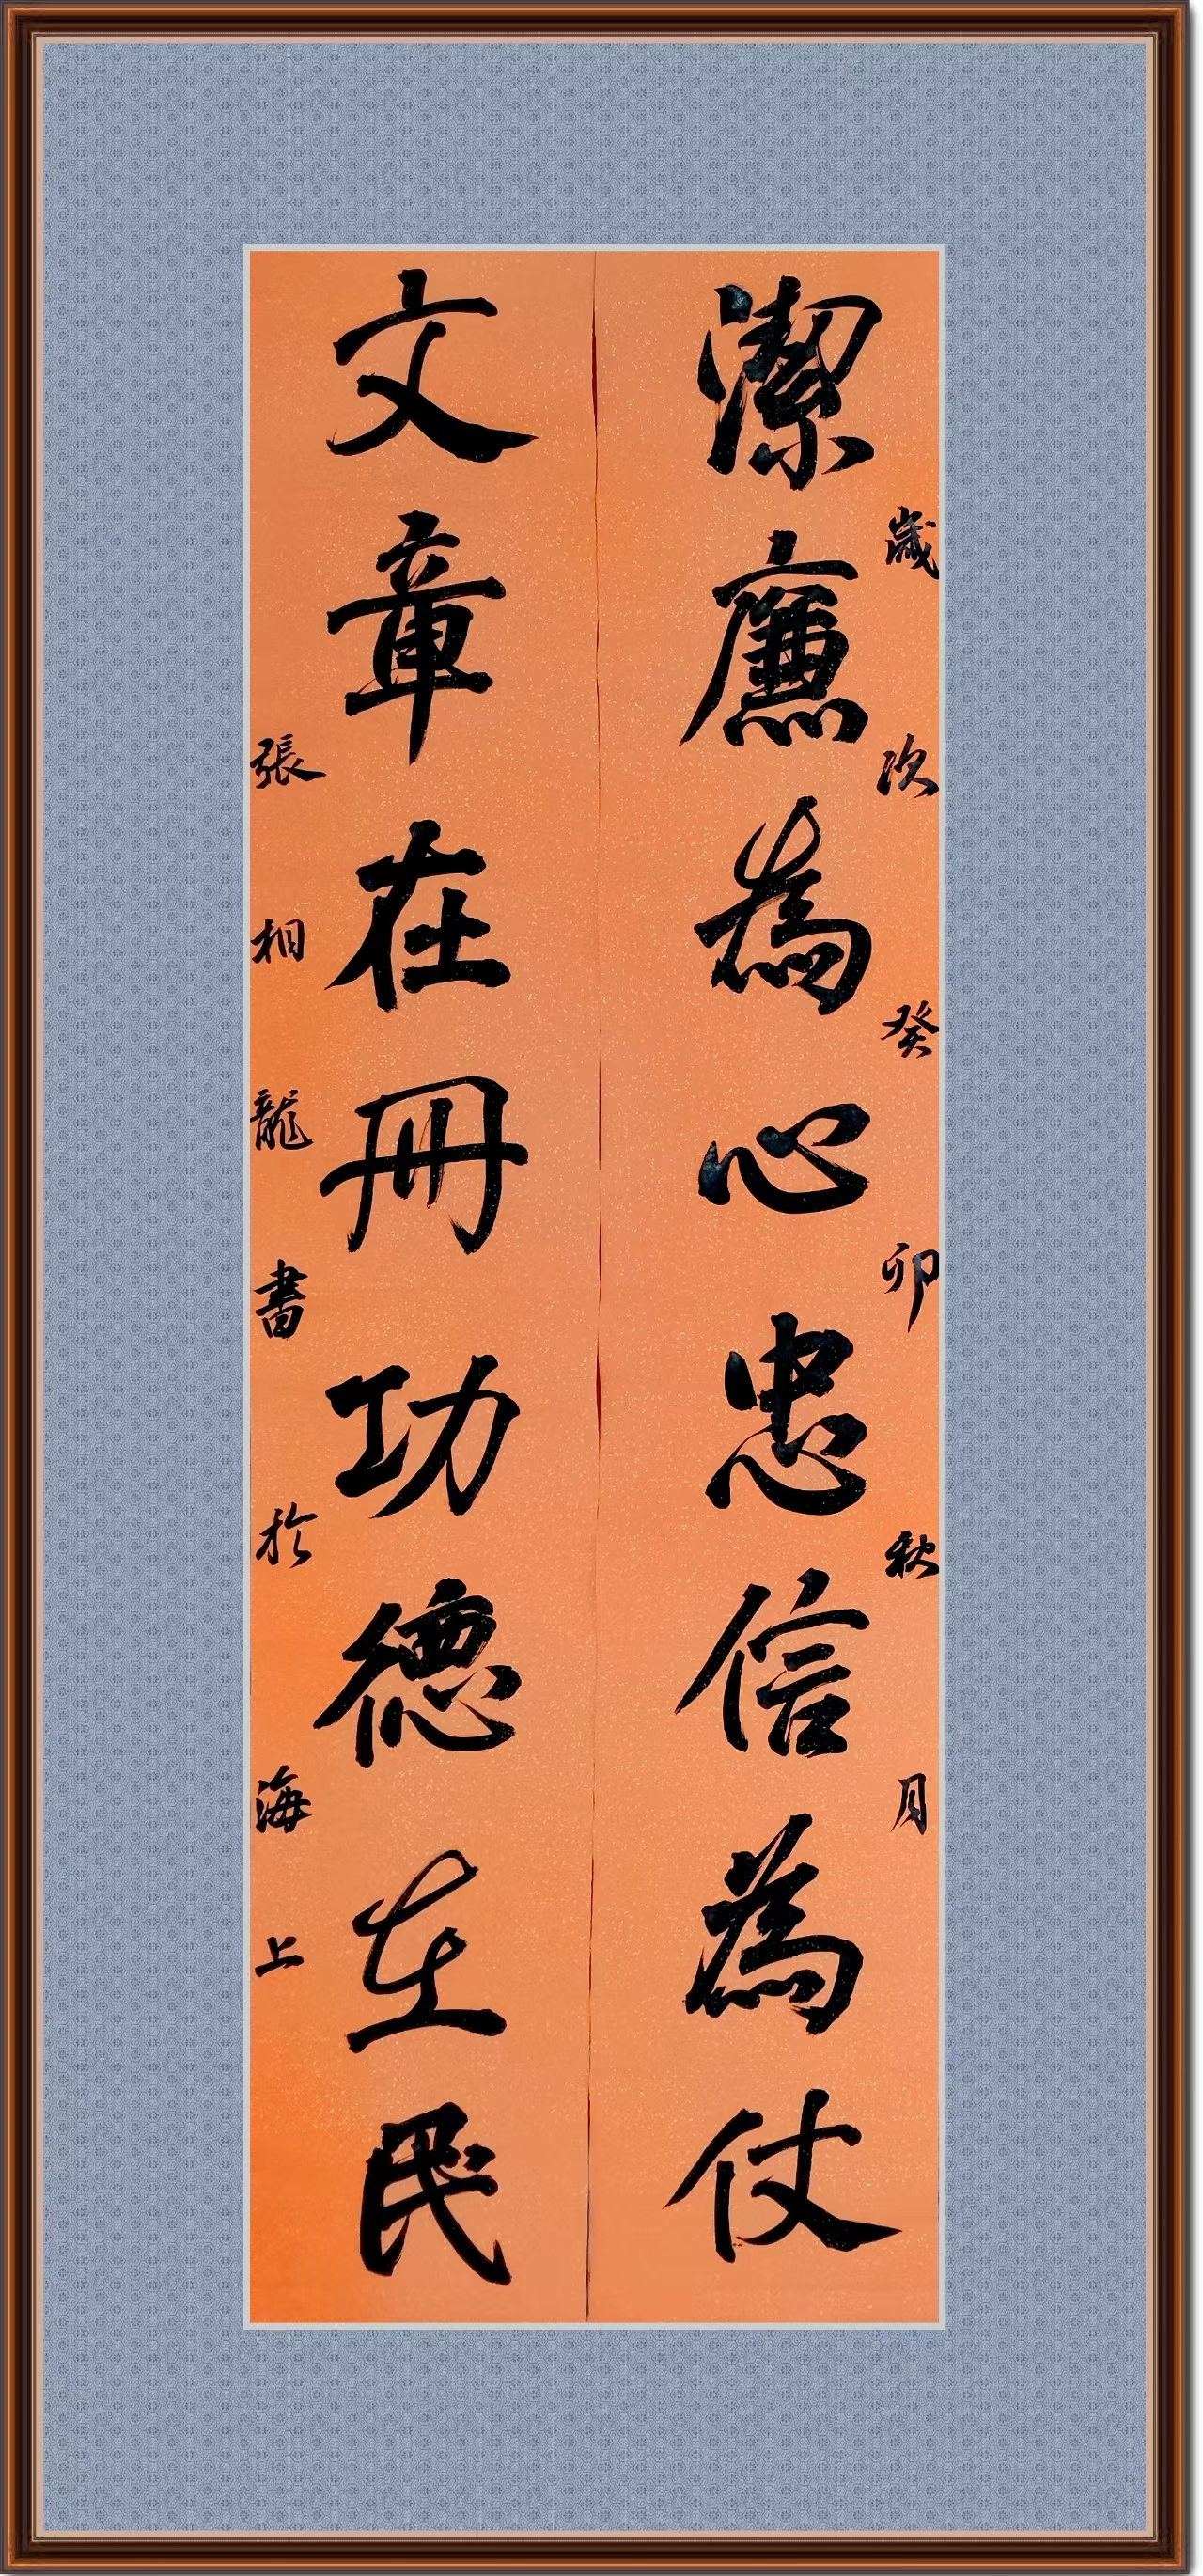 歲次癸卯秋月
潔廉為心忠信為仗
文章在冊功德在民
張相龍書於海上